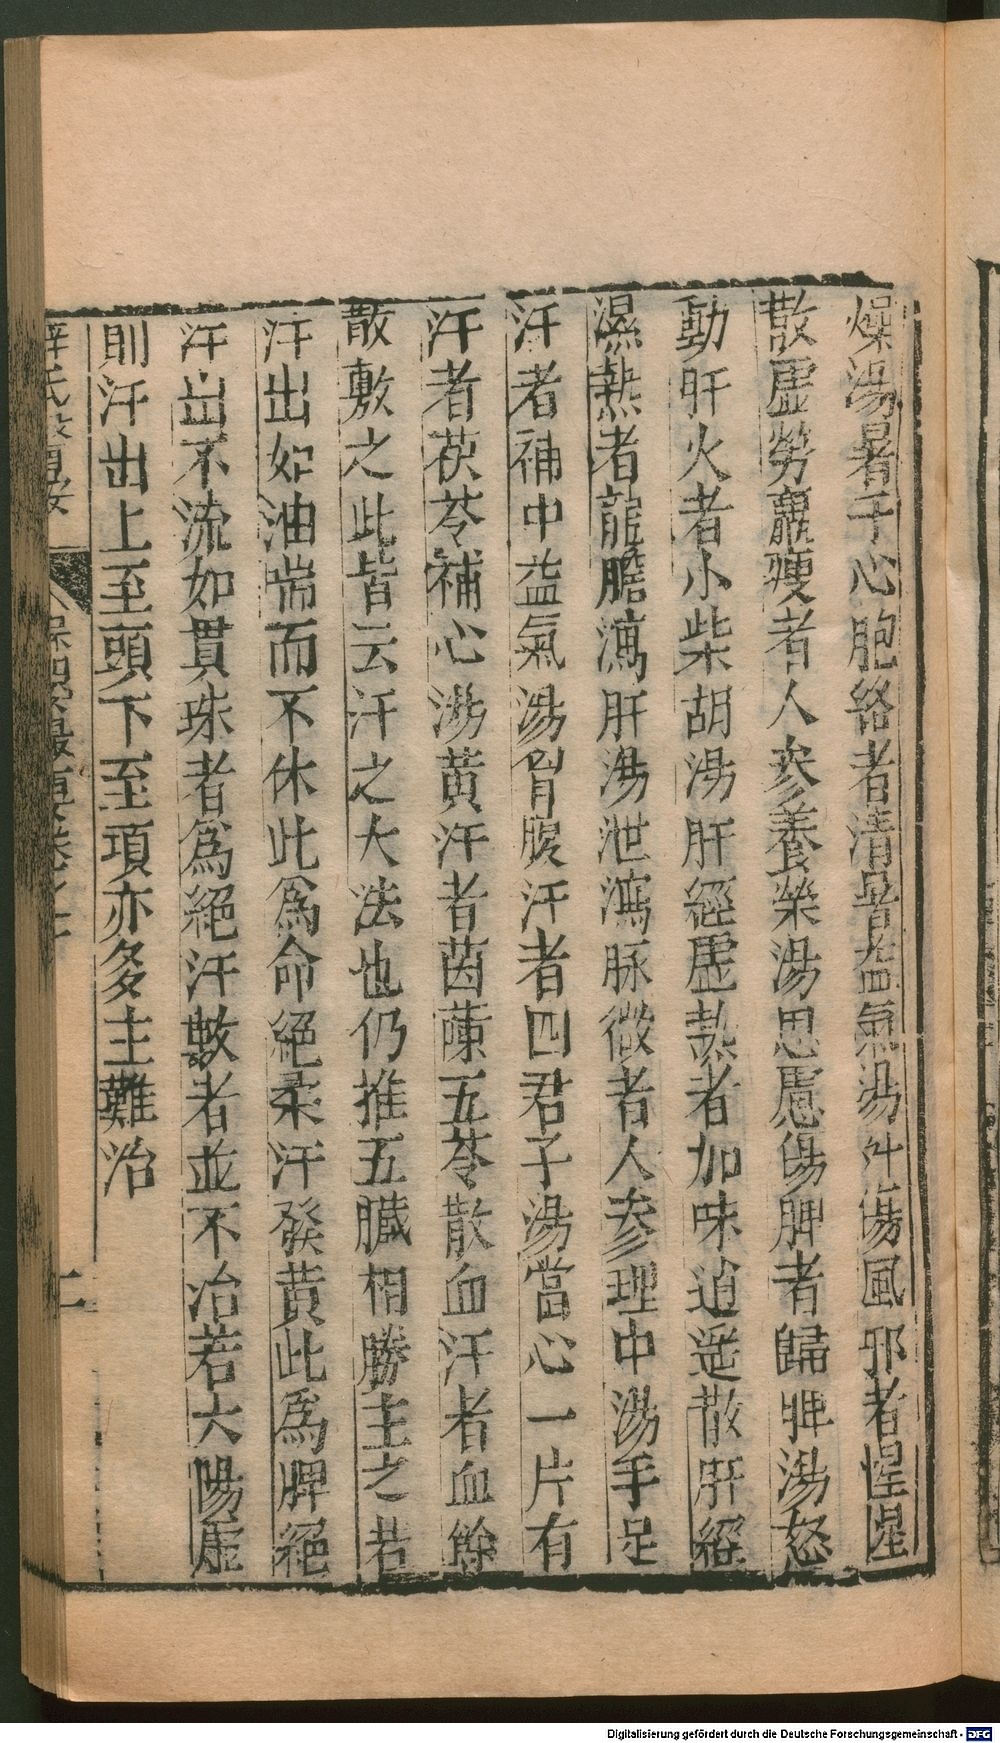 燥湯暑干心胞絡者清暑益氣湯外傷風邪者惺惺
散虛勞羸瘦者人參養榮湯思慮傷脾者歸脾湯怒
動肝火者小柴胡湯肝經虛熱者加味逍遥散肝經
濕熱者龍膽瀉肝湯泄瀉脉微者人參理中湯手足
汗者補中益氣湯胷腹汗者四君子湯當心一片有
汗者茯苓補心湯黃汗者茵蔯五苓散血汗者血餘
散敷之此皆云汗之大法也仍推五臟相勝主之若
汗出如油喘而不休此爲命絕柔汗發黃此爲脾絕
汗出不流如貫珠者爲絕汗數者並不治若六陽虛
則汗出上至頭下至項亦多主難治
保嬰撮要卷之十
二
Digitalisierung gefördert durch die Deutsche Forschungsgemeinschaft - DFG